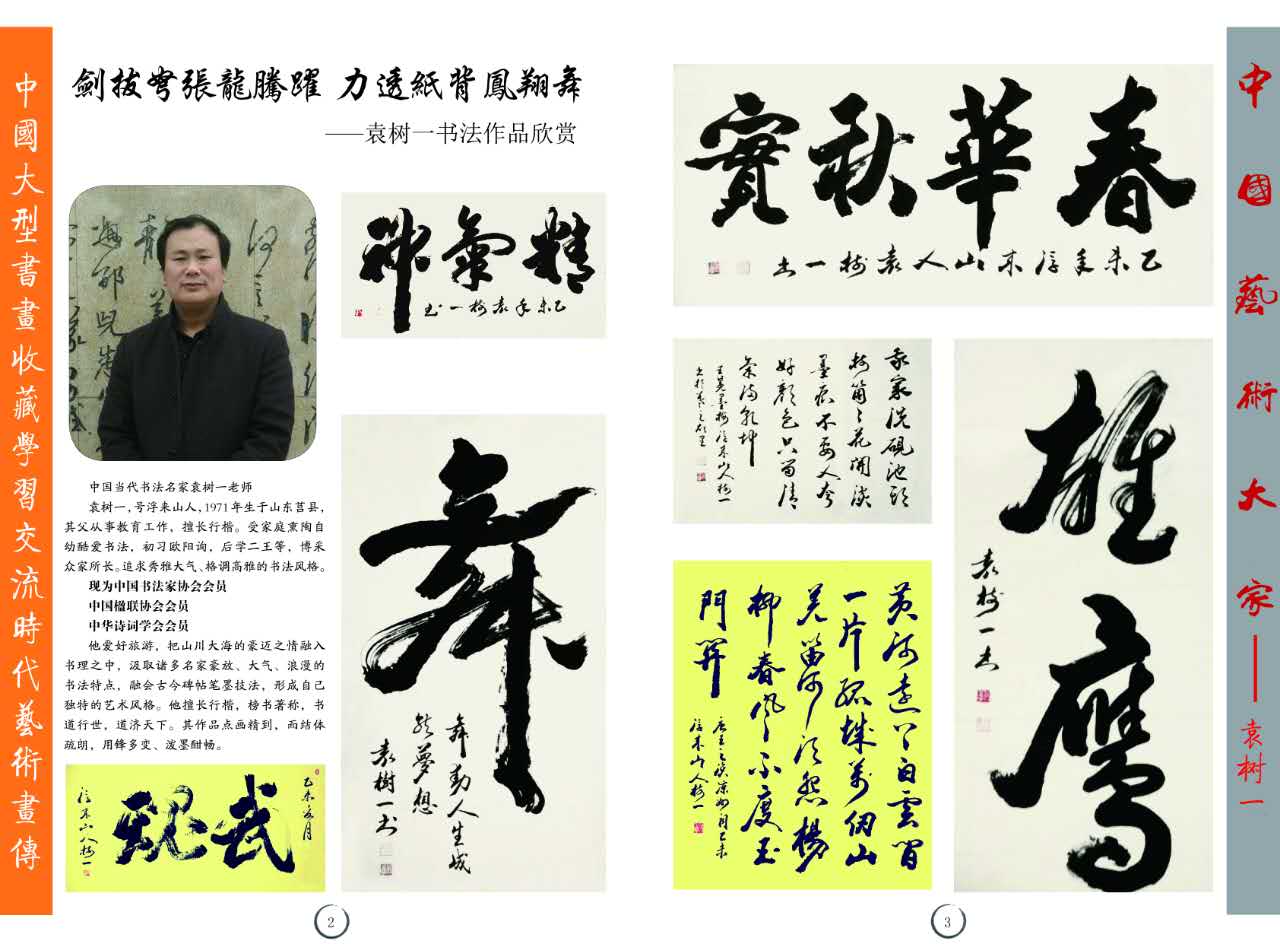 中國大型書畫收藏學習交流時代藝術畫傳
劍拔弩張龍騰躍 力透紙背鳳翔舞
——袁树一书法作品欣赏
中国当代书法名家袁树一老师
袁树一，号浮来山人，1971年生于山东莒县，
其父从事教育工作，擅长行楷。受家庭熏陶自
幼酷爱书法，初习欧阳询，后学二王等，博采
众家所长。追求秀雅大气、格调高雅的书法风格。
现为中国书法家协会会员
中国楹联协会会员
中华诗词学会会员
他爱好旅游，把山川大海的豪迈之情融入
书理之中，汲取诸多名家豪放、大气、浪漫的
书法特点，融会古今碑帖笔墨技法，形成自己
独特的艺术风格。他擅长行楷，榜书著称，书
道行世，道济天下。其作品点画精到，而结体
疏朗，用锋多变、泼墨酣畅。
精氣神
乙未年袁樹一书
舞
舞動人生成
就夢想
袁樹一书
乙未年月
浮来山人樹一
2
春華秋實
乙未年浮来山人袁樹一书
我家洗硯池頭
樹箇々花開淡
墨痕不要人夸
好顏色只留清
氣滿乾坤
王冕墨梅浮来山人樹一
黃河遠上白雲間
一片孤城萬仞山
羌笛何須怨楊
柳春風不度玉
門關
浮来山人樹一
雄鷹
袁樹一书
3
中國藝術大家——袁树一